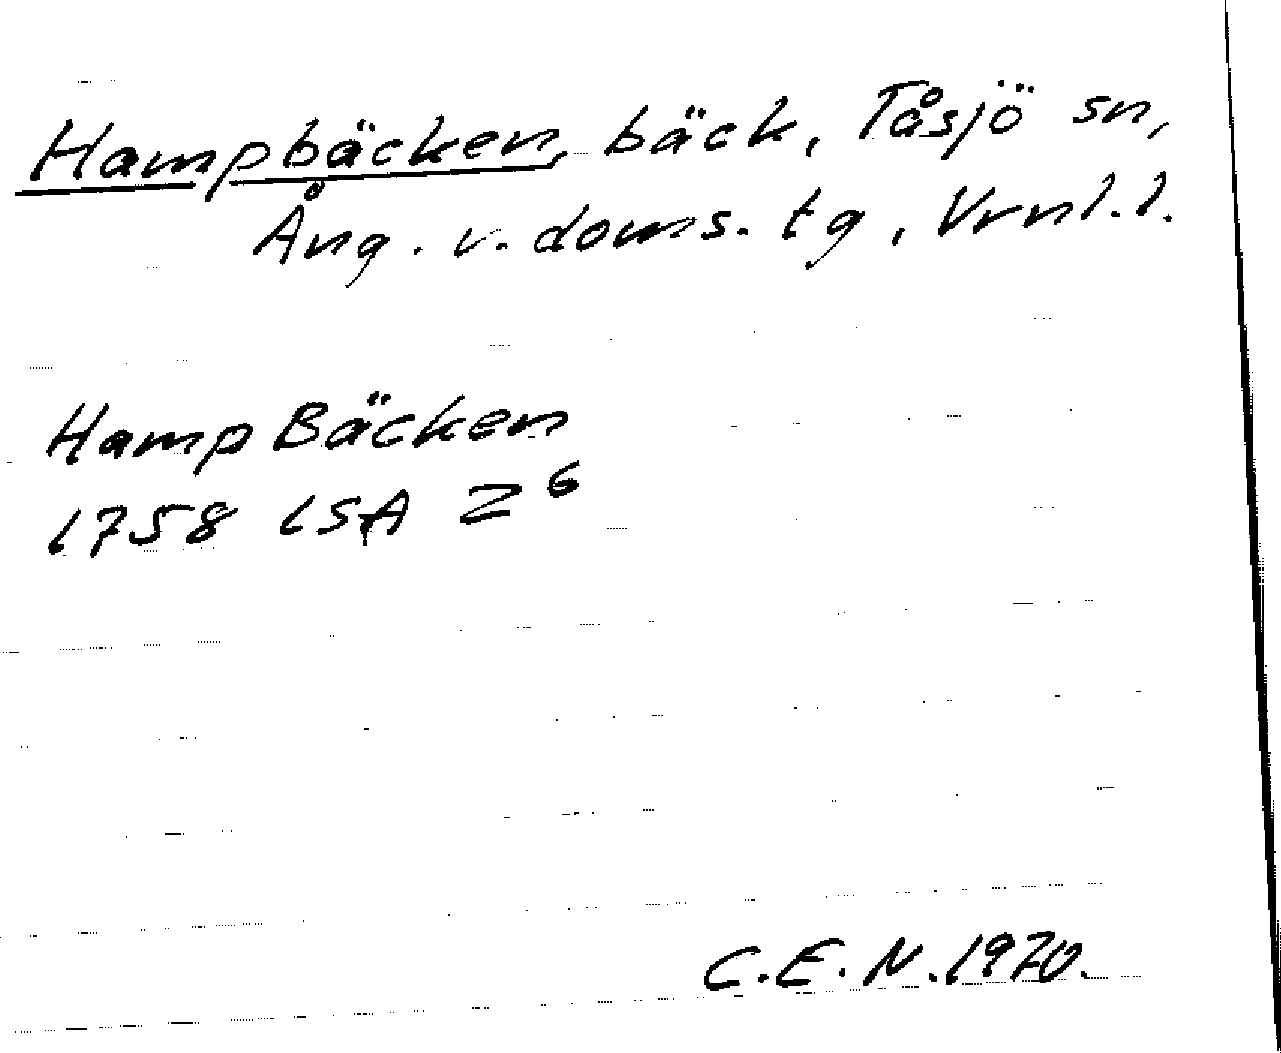 Hampbäcken, bäck, Tåsjö sn,
Ång. v. doms. tg, Vrnl. l.
Hamp Bäcken
1758 LSA Z⁶
C.E.N. 1970.